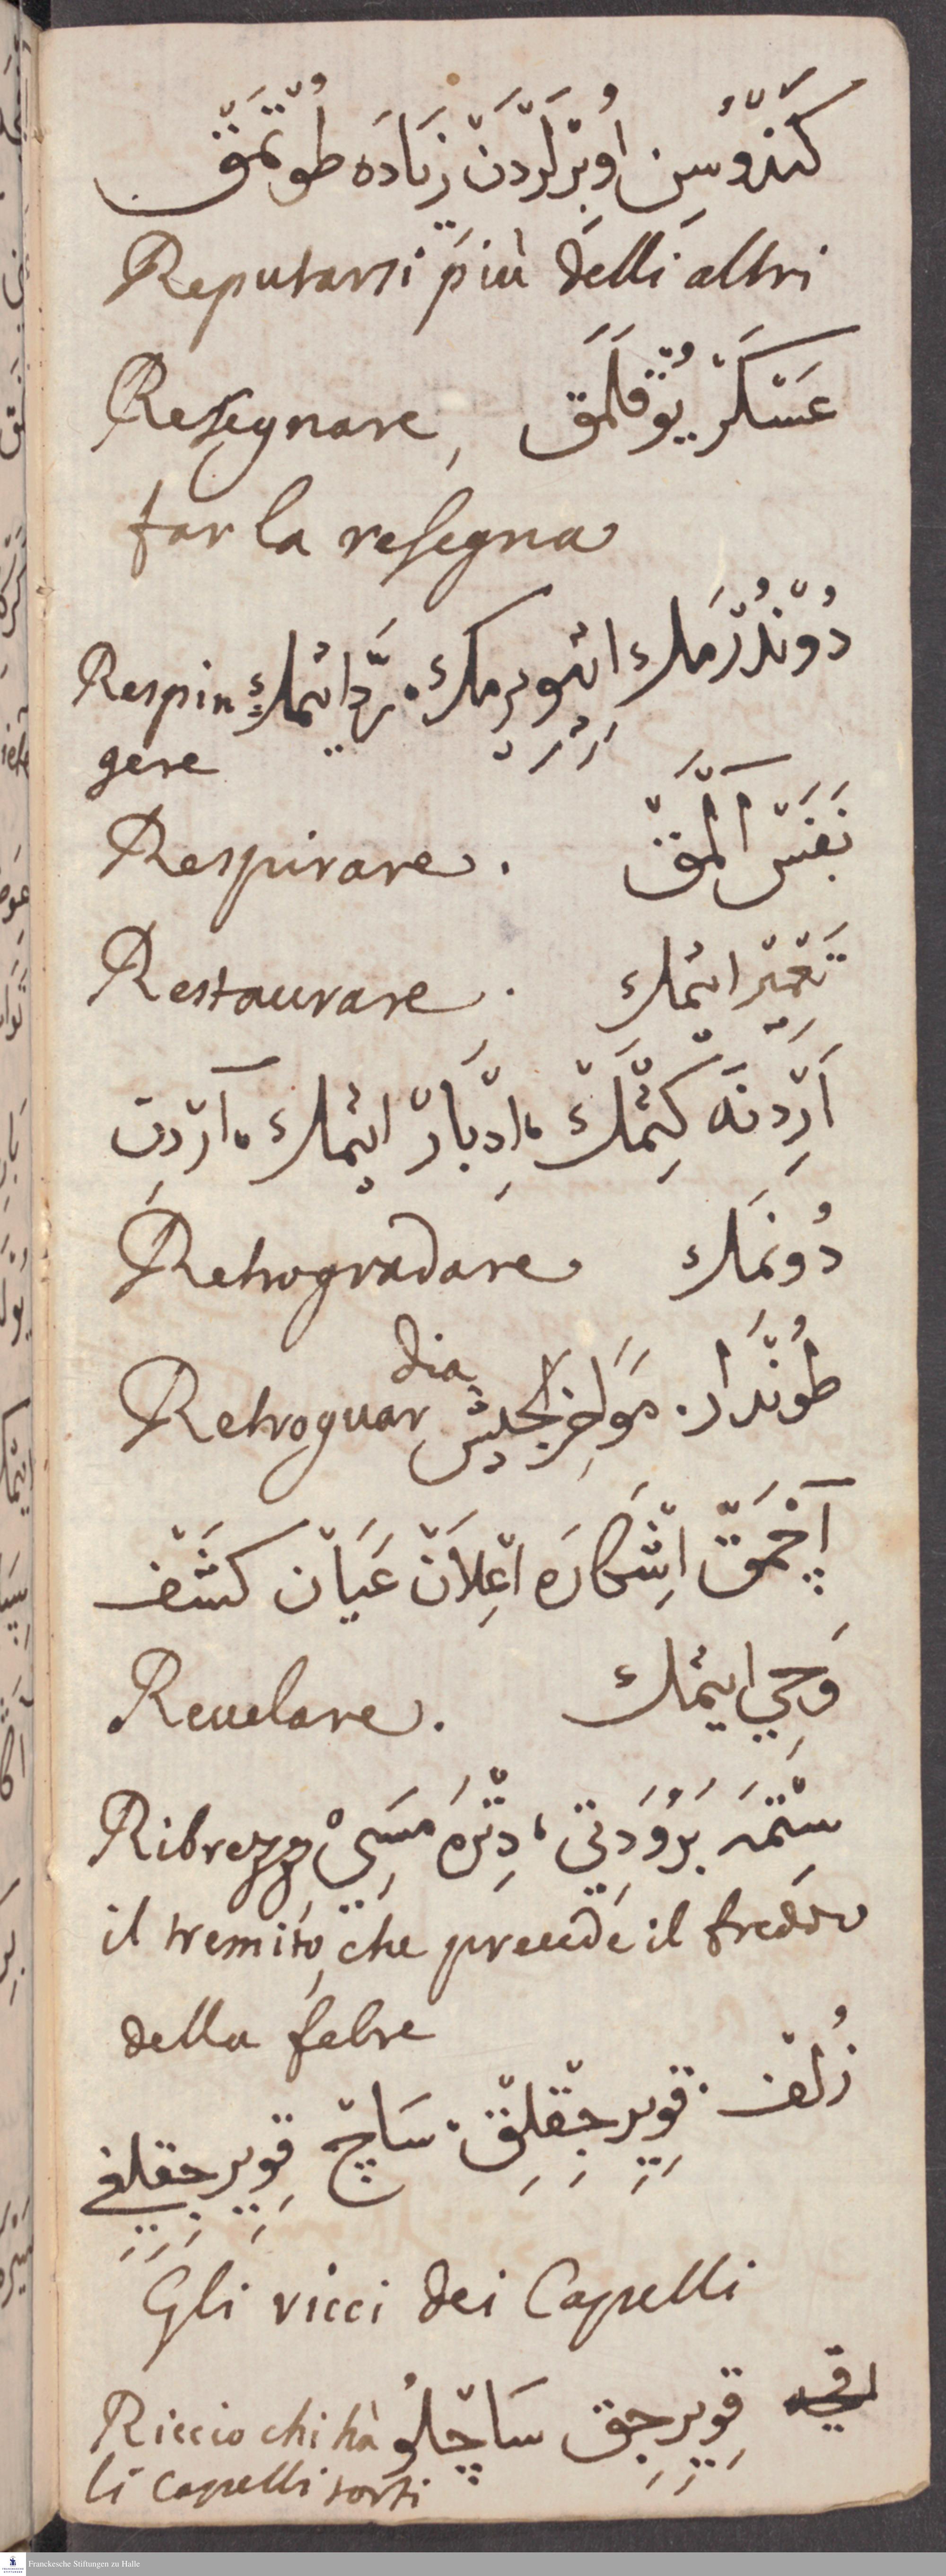 كَنْدُوسِن اُوبَرْلَرْدَنْ زِيَادَه طُوتْمَقْ
Reputarsi più delli altri
Resegnare, عَسْكَرْ يُوقْلَمَقْ
far la resegna
Respin دُونْدُرْمَك ايتيويرمك. رَدّ ايتمك
gere
Respirare. نَفَسْ آلْمَقْ
Restaurare. تَعْمِيْر ايتمك
اَرْدِنَه كِتْمَكْ، اِدْبَارْ ايتمك، آرْدِن
Retrogradare دُونمَك
dia
Retroguar طُونْدَار. مَوَاخِرْ الجيش
آچْمَقْ اِشْكَارَه اِعْلَانْ عَيَانْ كَشْفْ
Reuelare. وَحِي ايتمك
Ribrezzo سِتْمَه بَرُودَتِي، دِتْرَه مَسِي
il tremito, che precede il freddo
della febre
زُلفْ. قِوِيرجِقْلِقْ. سَاچْ قِوِيرجقلغي
Gli ricci dei Capelli
Riccio chi hà قِوِيرِجِق سَاچْلُو
li capelli torti